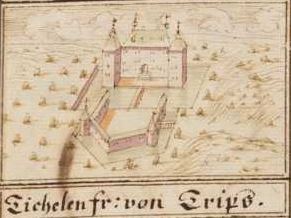 Tichelen fr: von Trips.